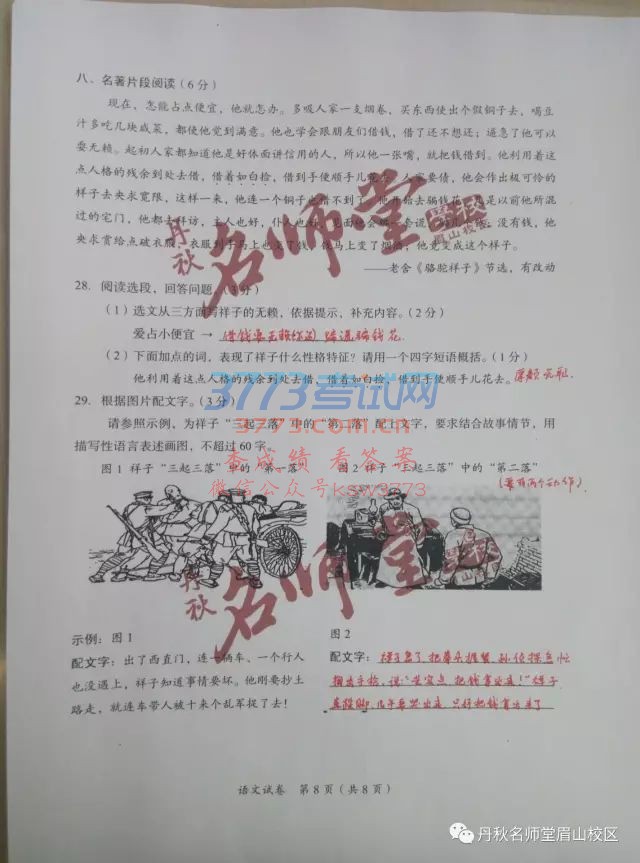 八、名著片段阅读(6分)
现在，怎能占点便宜，他就怎办。多吸人家一支烟卷，买东西使出个假铜子去，喝豆
汁多吃几块咸菜，都使他觉到满意。他也学会跟朋友们借钱，借了还不想还；逼急了他可以
耍无赖。起初人家都知道他是好体面讲信用的人，所以他一张嘴，就把钱借到。他利用着这
点人格的残余到处去借，借着如白捡，借到手便顺手儿花去。人家要债，他会作出极可怜的
样子去央求宽限，这样一来，他连一个铜子也借不到了，他开始去骗钱花。凡是以前他所混
过的宅门，他都去拜访，主人也好，仆人也好，见面他会编一套谎，骗几个钱；没有钱，他
央求赏给点破衣服，衣服到手马上也变了钱，钱马上变了烟酒，他竟变成这个样子。
——老舍《骆驼祥子》节选，有改动
28. 阅读选段，回答问题。(3分)
(1)选文从三方面写祥子的无赖，依据提示，补充内容。(2分)
爱占小便宜 → 借钱耍无赖 编谎骗钱花
(2)下面加点的词，表现了祥子什么性格特征？请用一个四字短语概括。(1分)
他利用着这点人格的残余到处去借，借着如白捡，借到手便顺手儿花去。厚颜无耻.
29. 根据图片配文字。(3分)
请参照示例，为祥子“三起三落”中的“第二落”配上文字，要求结合故事情节，用
描写性语言表述画图，不超过60字。
3773考试网
www.3773.com.cn
查成绩 看答案
微信公众号ksw3773
图1 祥子“三起三落”中的“第一落”
图2 祥子“三起三落”中的“第二落”
(要有两个动作)
丹秋
名师堂
眉山校区
丹秋
名师堂
眉山校区
示例：图1
配文字：出了西直门，连一辆车、一个行人
也没遇上，祥子知道事情要坏。他刚要抄土
路走，就连车带人被十来个乱军捉了去！
图2
配文字：祥子急了,把拳头握紧,孙侦探急忙
掏出手枪,说“放安点,把钱拿出来!”祥子
直跺脚,几乎要哭出来,只好把钱拿出来了
语文试卷 第8页(共8页)
丹秋名师堂眉山校区